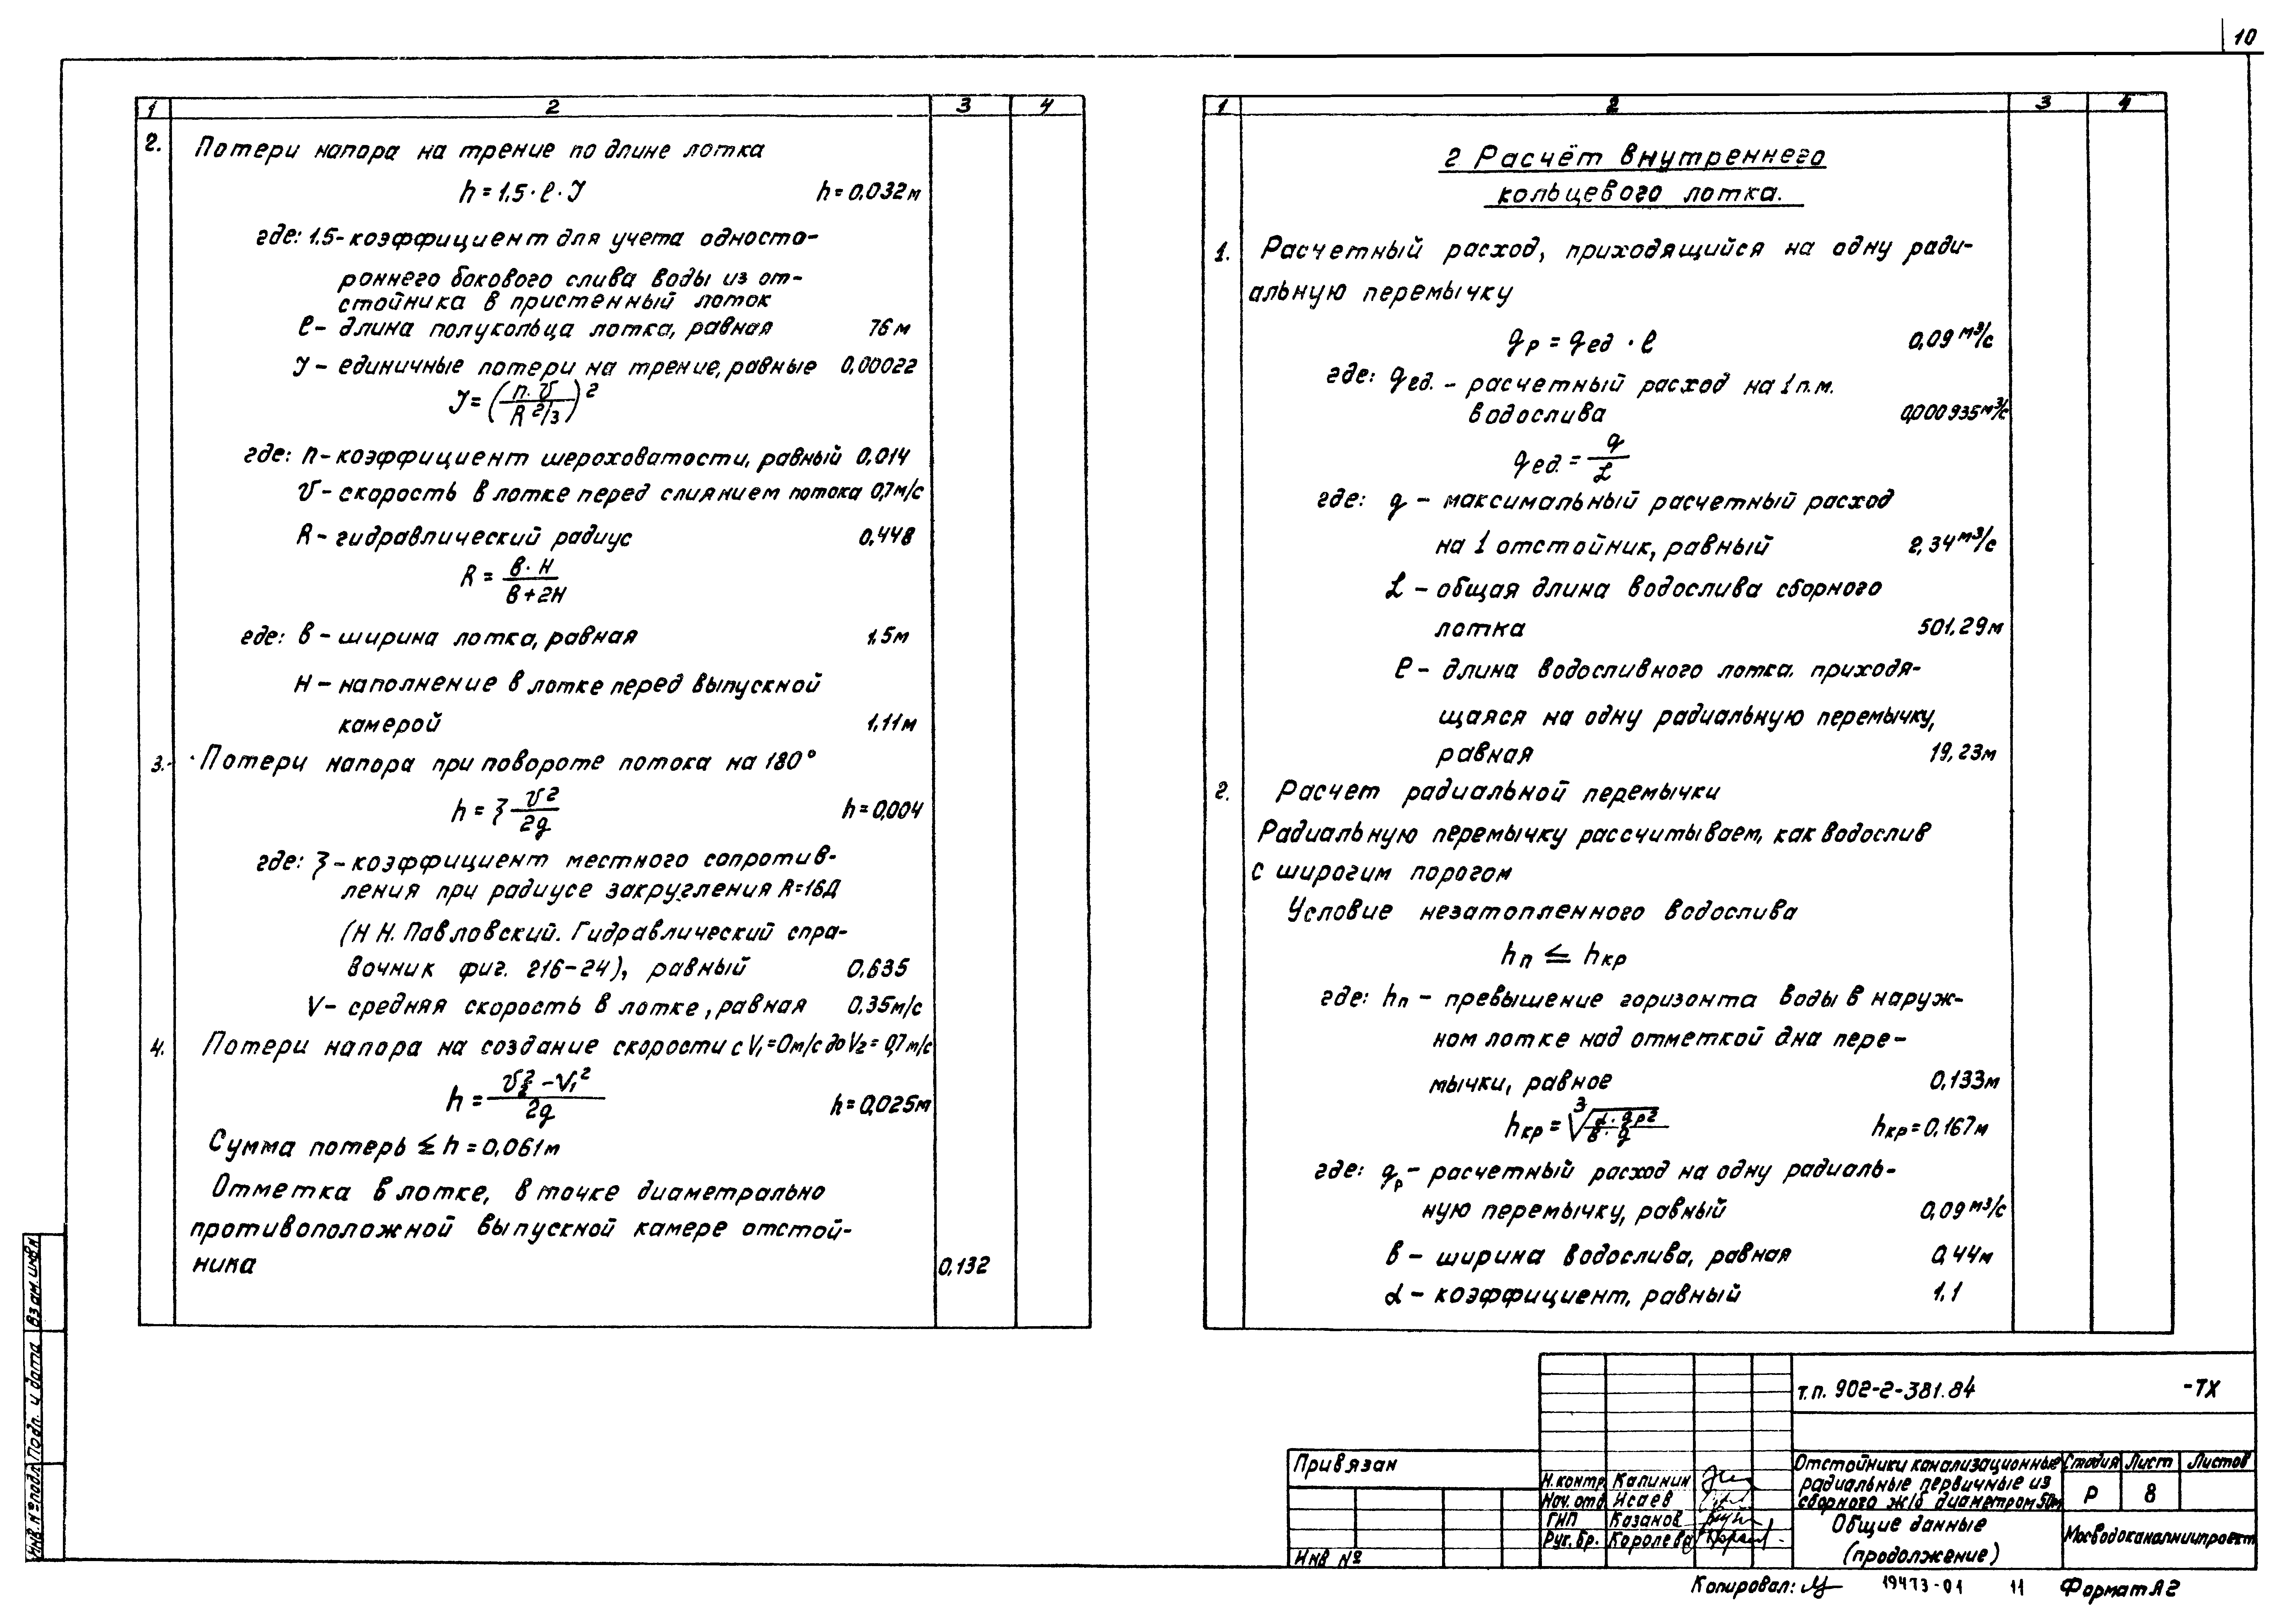 10
1 2 3 4
2. Потери напора на трение по длине лотка
h = 1,5 · ℓ · J h = 0,032м
где: 1,5- коэффициент для учета односто-
роннего бокового слива воды из от-
стойника в пристенный лоток
ℓ - длина полукольца лотка, равная 76 м
J - единичные потери на трение, равные 0,00022
J = (n. v / R 2/3)²
где: n - коэффициент шероховатости, равный 0,014
v - скорость в лотке перед слиянием потока 0,7м/с
R - гидравлический радиус 0,448
R = в · н / в + 2н
где: в - ширина лотка, равная 1,5м
н - наполнение в лотке перед выпускной
камерой 1,11м
3. Потери напора при повороте потока на 180°
h = ξ v² / 2g h = 0,004
где: ξ - коэффициент местного сопротив-
ления при радиусе закругления R=16Д
(Н Н. Павловский. Гидравлический спра-
вочник фиг. 216-24), равный 0,635
V - средняя скорость в лотке, равная 0,35м/с
4. Потери напора на создание скорости с V₁ = 0м/с до V₂ = 0,7м/с
h = v₂² - V₁² / 2g h = 0,025м
Сумма потерь Σ h = 0,061м
Отметка в лотке, в точке диаметрально
противоположной выпускной камере отстой-
ника 0,132
1 2 3 4
2 Расчёт внутреннего
кольцевого лотка.
1. Расчетный расход, приходящийся на одну ради-
альную перемычку
qр = qед · ℓ 0,09 м³/с
где: qед. - расчетный расход на 1 п.м.
водослива 0,000935м³/с
qед. = q / L
где: q - максимальный расчетный расход
на 1 отстойник, равный 2,34 м³/с
L - общая длина водослива сборного
лотка 501,29м
ℓ - длина водосливного лотка, приходя-
щаяся на одну радиальную перемычку,
равная 19,23м
2. Расчет радиальной перемычки
Радиальную перемычку рассчитываем, как водослив
с широгим порогом
Условие незатопленного водослива
hп ≤ hкр
где: hп - превышение горизонта воды в наруж-
ном лотке над отметкой дна пере-
мычки, равное 0,133м
hкр = ³√ α · qр² / в · g hкр = 0,167м
где: qр - расчетный расход на одну радиаль-
ную перемычку, равный 0,09 м³/с
в - ширина водослива, равная 0,44м
α - коэффициент, равный 1.1
Взам.инв№
Подп. и дата
Инв.№подл
Привязан
Инв №
Н.контр. Калинин
Нач. отд Исаев
ГИП Казанов
Рук. бр. Королева
т.п. 902-2-381.84 -ТХ
Отстойники канализационные
радиальные первичные из
сборного ж/б диаметром 50м
Стадия Лист Листов
Р 8
Общие данные
(продолжение)
Мосводоканалниипроект
Копировал: 19473-01 11 Формат А2